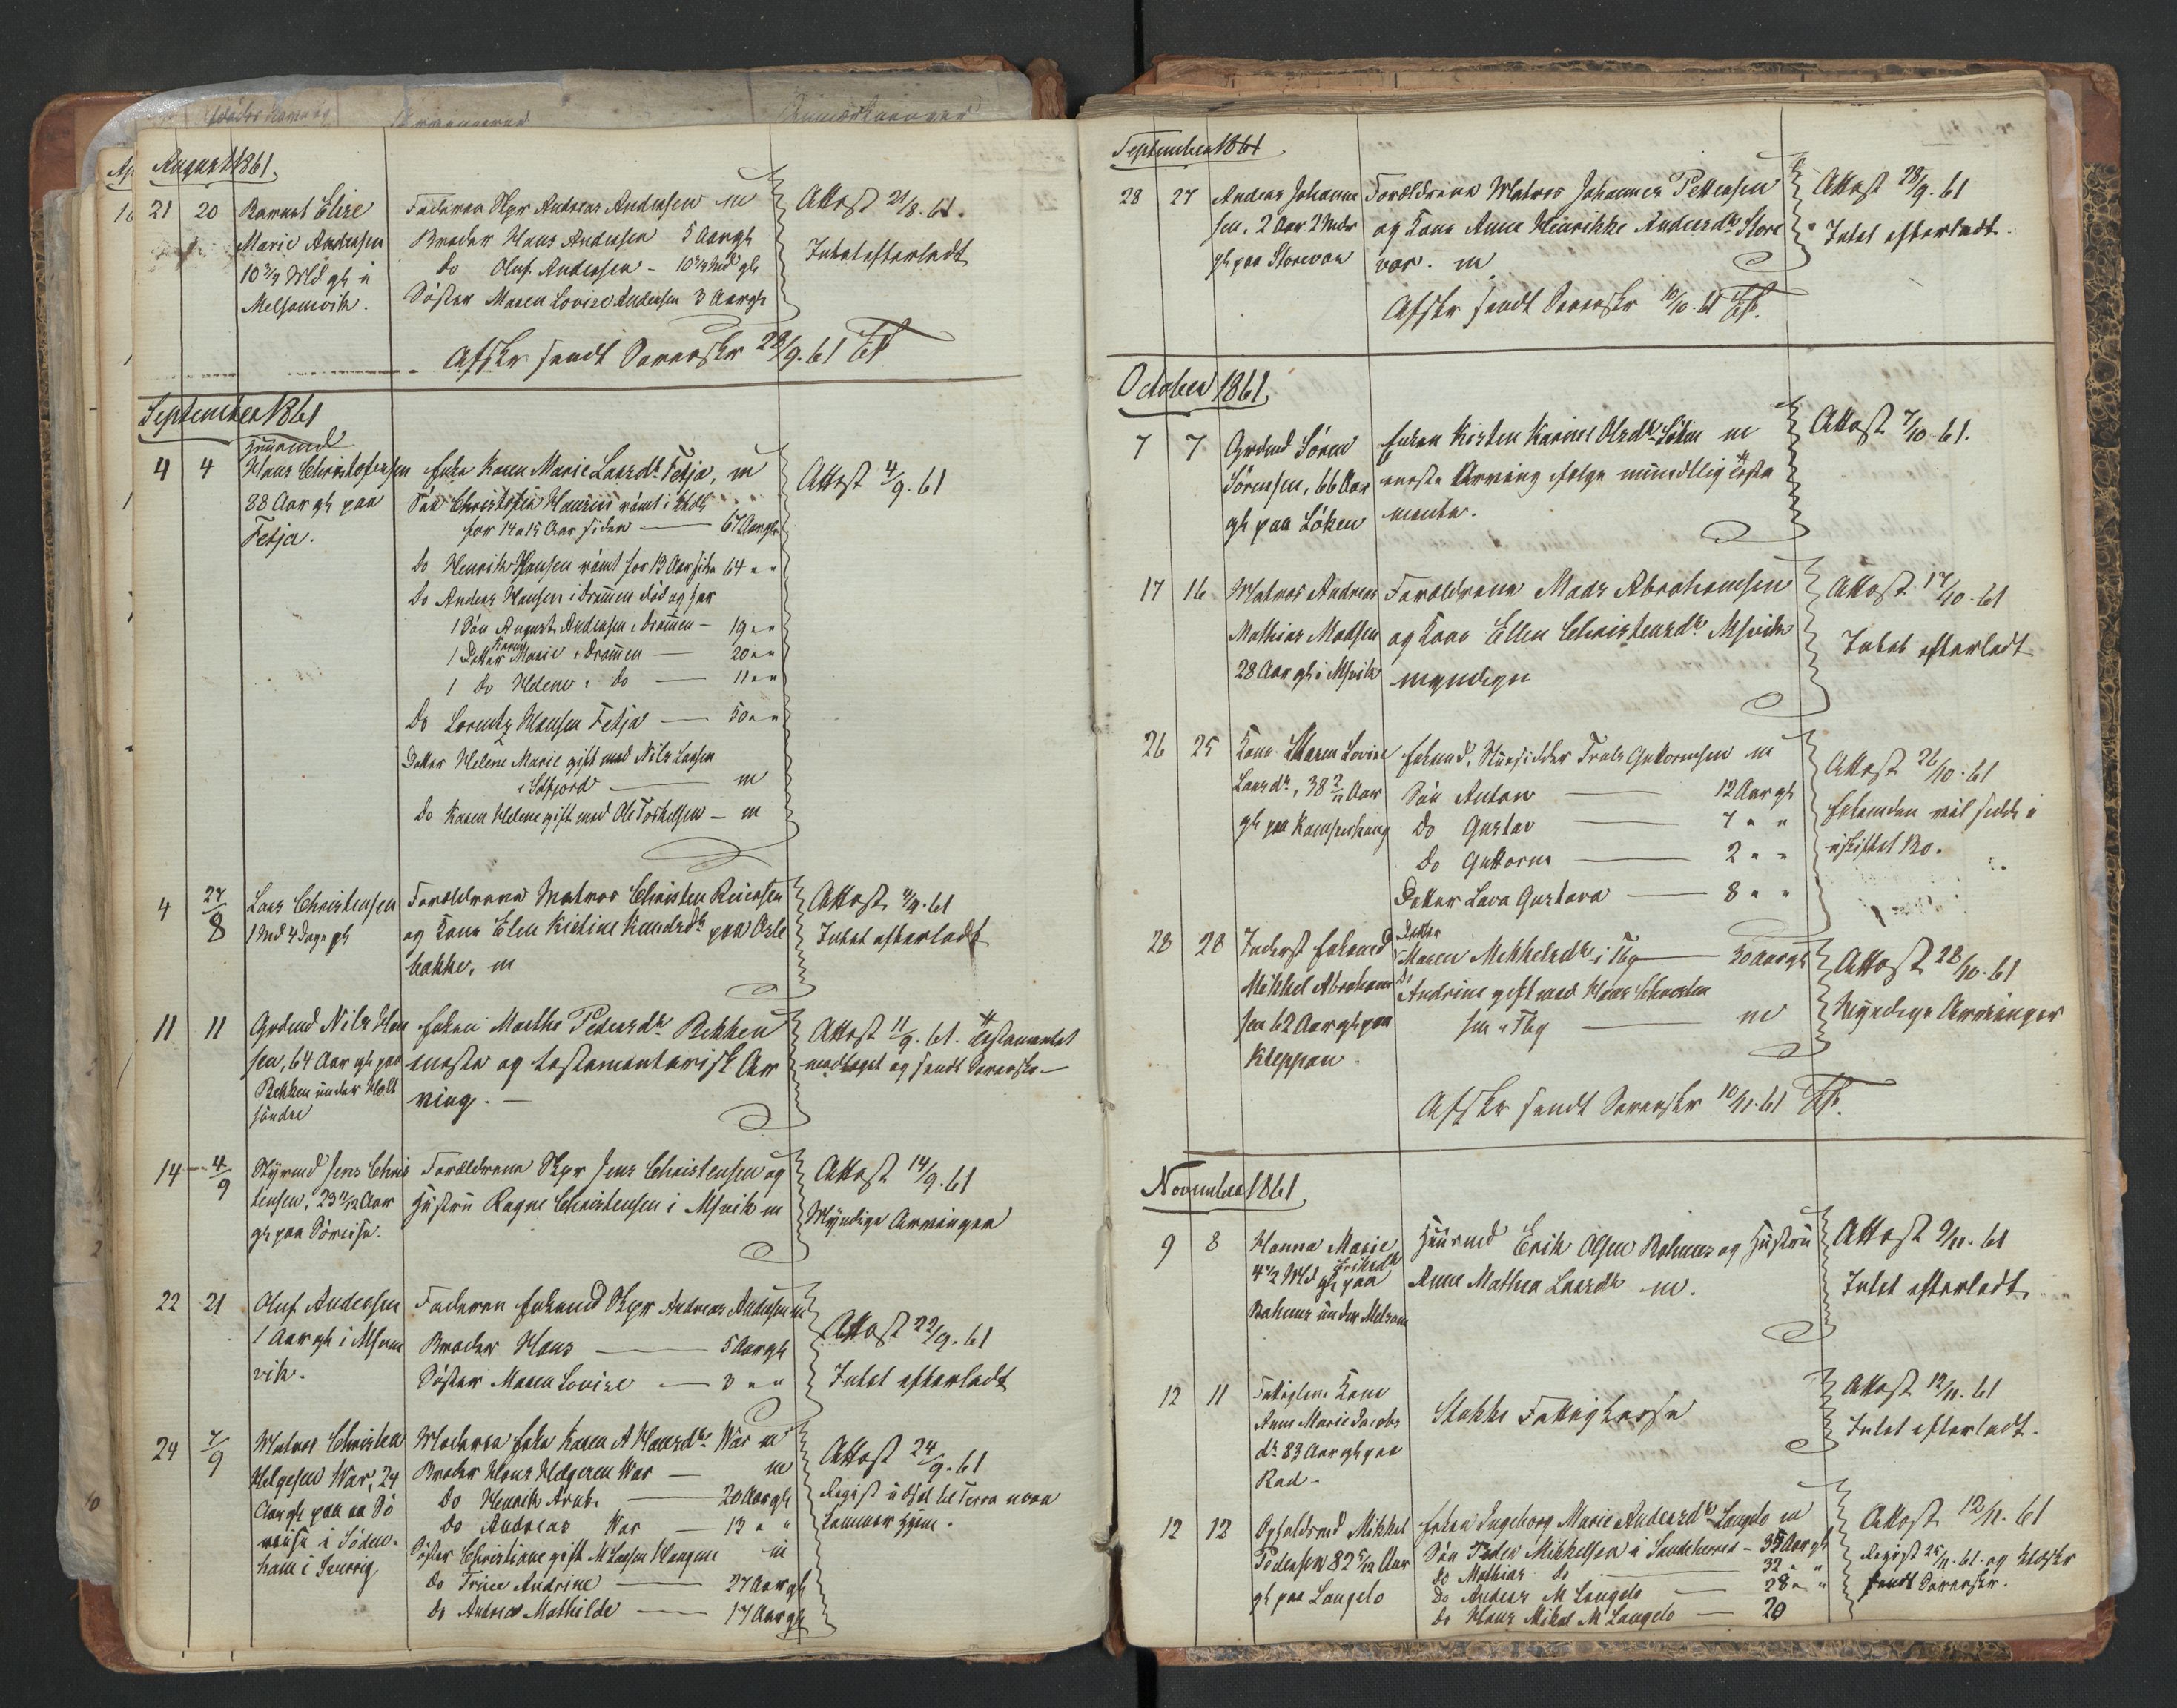 August 1861.
21 20 Barnet Elise
Marie Andersen
10 3/4 Md gl i
Melsomvik.
Faderen Skpr Andreas Andersen m
Broder Hans Andersen 5 Aar gl
do Oluf Andersen - 10 3/4 Md gl
Söster Maren Lovise Andersen 3 Aar gl
Attest 21/8. 61.
Intet efterladt
Afskr sendt Sorenskr 28/9. 61
September 1861
4 4 Huusmd
Hans Christofersen
88 Aar gl paa
Fetja.
Enke Karen Marie Larsdr Fetja, m
Sön Christofer Hansen römt
for 14 a 15 Aar siden — 67 Aar gl
Do Henrik Hansen römt for 13 Aar siden 64 " "
Do Anders Hansen i Drammen död og har
1 Sön August Andersen i Drammen - 19 " "
1 Datter Karen Marie i Drammen — 20 " "
1 Do Helene i do — 11 " "
Do Lorentz Hansen Fetja — 50 " "
Datter Helene Marie gift med Nils Larsen
— m
Do Karen Helene gift med Ole Torkelsen — m
Attest 4/9. 61
4 27/8 Lars Christensen
1 Md 4 Dage gl
Forældrene Matros Christen Reiersen
og Kone Elen Kirstine Knudsdr paa Osle
bakke, m
Attest 4/9. 61
Intet efterladt
11 11 Grdmd Nils Han
sen, 64 Aar gl paa
Bekken under Holt
söndre
Enken Marthe Pedersdr Bekken
eneste og testamentarisk Ar
ving. —
Attest 11/9. 61. Testamentet
modtaget og sendt Sorenskr —
14 4/9 Styrmd Jens Chris
tensen, 23 11/12 Aar
gl paa Söreise.
Forældrene Skpr Jens Christensen og
Hustru Ragne Christensen i Msvik m
Attest 14/9. 61
Myndige Arvinger
22 21 Oluf Andersen
1 Aar gl i Msom
vik.
Faderen Enkemd Skpr Andreas Andersen m
Broder Hans — 5 Aar gl
Söster Maren Lovise — 3 " "
Attest 22/9. 61
Intet efterladt
24 7/9 Matros Christen
Helgesen War, 24
Aar gl paa en Sö
reise i Söder-
ham i Sverrig
Moderen Enke Karen A Hansdr War m
Broder Hans Helgesen War — m
Do Henrik Arnt — 20 Aar gl
Do Andreas War — 13 " "
Söster Christiane gift M Larsen Haugene m
do Trine Andrine — 27 Aar gl
do Andrea Mathilde — 17 Aar gl
Attest 24/9. 61
kommer hjem.
September 1861.
28 27 Anders Johanne
sen, 2 Aar 2 Mdr
gl paa Storevar
Forældrene Matros Johannes Pettersen
og Kone Anne Henrikke Andersdr Store
var. m
Attest 28/9. 61
Intet efterladt.
Afskr sendt Sorenskr 10/10. 61
October 1861.
7 7 Grdmd Sören
Sörensen, 66 Aar
gl paa Löken
Enken Kirsten Karine Olsdr Löken m
eneste Arving ifölge mundtlig Testa
mente.
Attest 7/10. 61.
17 16 Matros Andreas
Mathias Madsen
28 Aar gl i Msvik
Forældrene Mads Abrahamsen
og Kone Ellen Christensdr Msvik
myndige
Attest 17/10. 61
Intet efterladt
26 25 Kone Maren Lovise
Larsdr, 38 2/12 Aar
gl paa
Enkemd, Huusfader Trols Guttormsen m
Sön Anton — 12 Aar gl
Do Gustav — 7 " "
Do Guttorm — 2 " "
Datter Lava Gustava — 8 " "
Attest 26/10. 61
Enkemden vil sidde i
uskiftet Bo.
28 28 Inderst Enkemd
Mikkel Abraham
sen 62 Aar gl paa
Kleppan.
Datter
Maren Mikkelsdr i Tbg — 30 Aar gl
do
Andrine gift med Hans Christen
sen i Tbg — m
Attest 28/10. 61
Myndige Arvinger
Afskr sendt Sorenskr 10/11. 61
November 1861.
9 8 Hanna Marie
Eriksdr
4 1/2 Md gl paa
Bakene under Melsom
Huusmd Erik Olsen Bakenes og Hustru
Anne Mathea Larsdr m.
Attest 9/11. 61
Intet efterladt.
12 11 Fattiglem Kone
Anne Marie Jacobs
dr 83 Aar gl paa
Rad.
Stokke Fattigkasse
Attest 12/11. 61
Intet efterladt.
12 12 Opholdsmd Mikkel
Pedersen 82 5/12 Aar
gl paa Langelo
Enken Ingeborg Marie Andersdr Langelo m
Sön Peder Mikkelsen i Sandeherred - 35 Aar gl
Do Mathias do — 32 " "
Do Anders M Langelo — 28 " "
Do Hans Mikal M Langelo — 20
Attest 12/11. 61
Regist 25/11. 61. og Udskr
sendt Sorenskr.